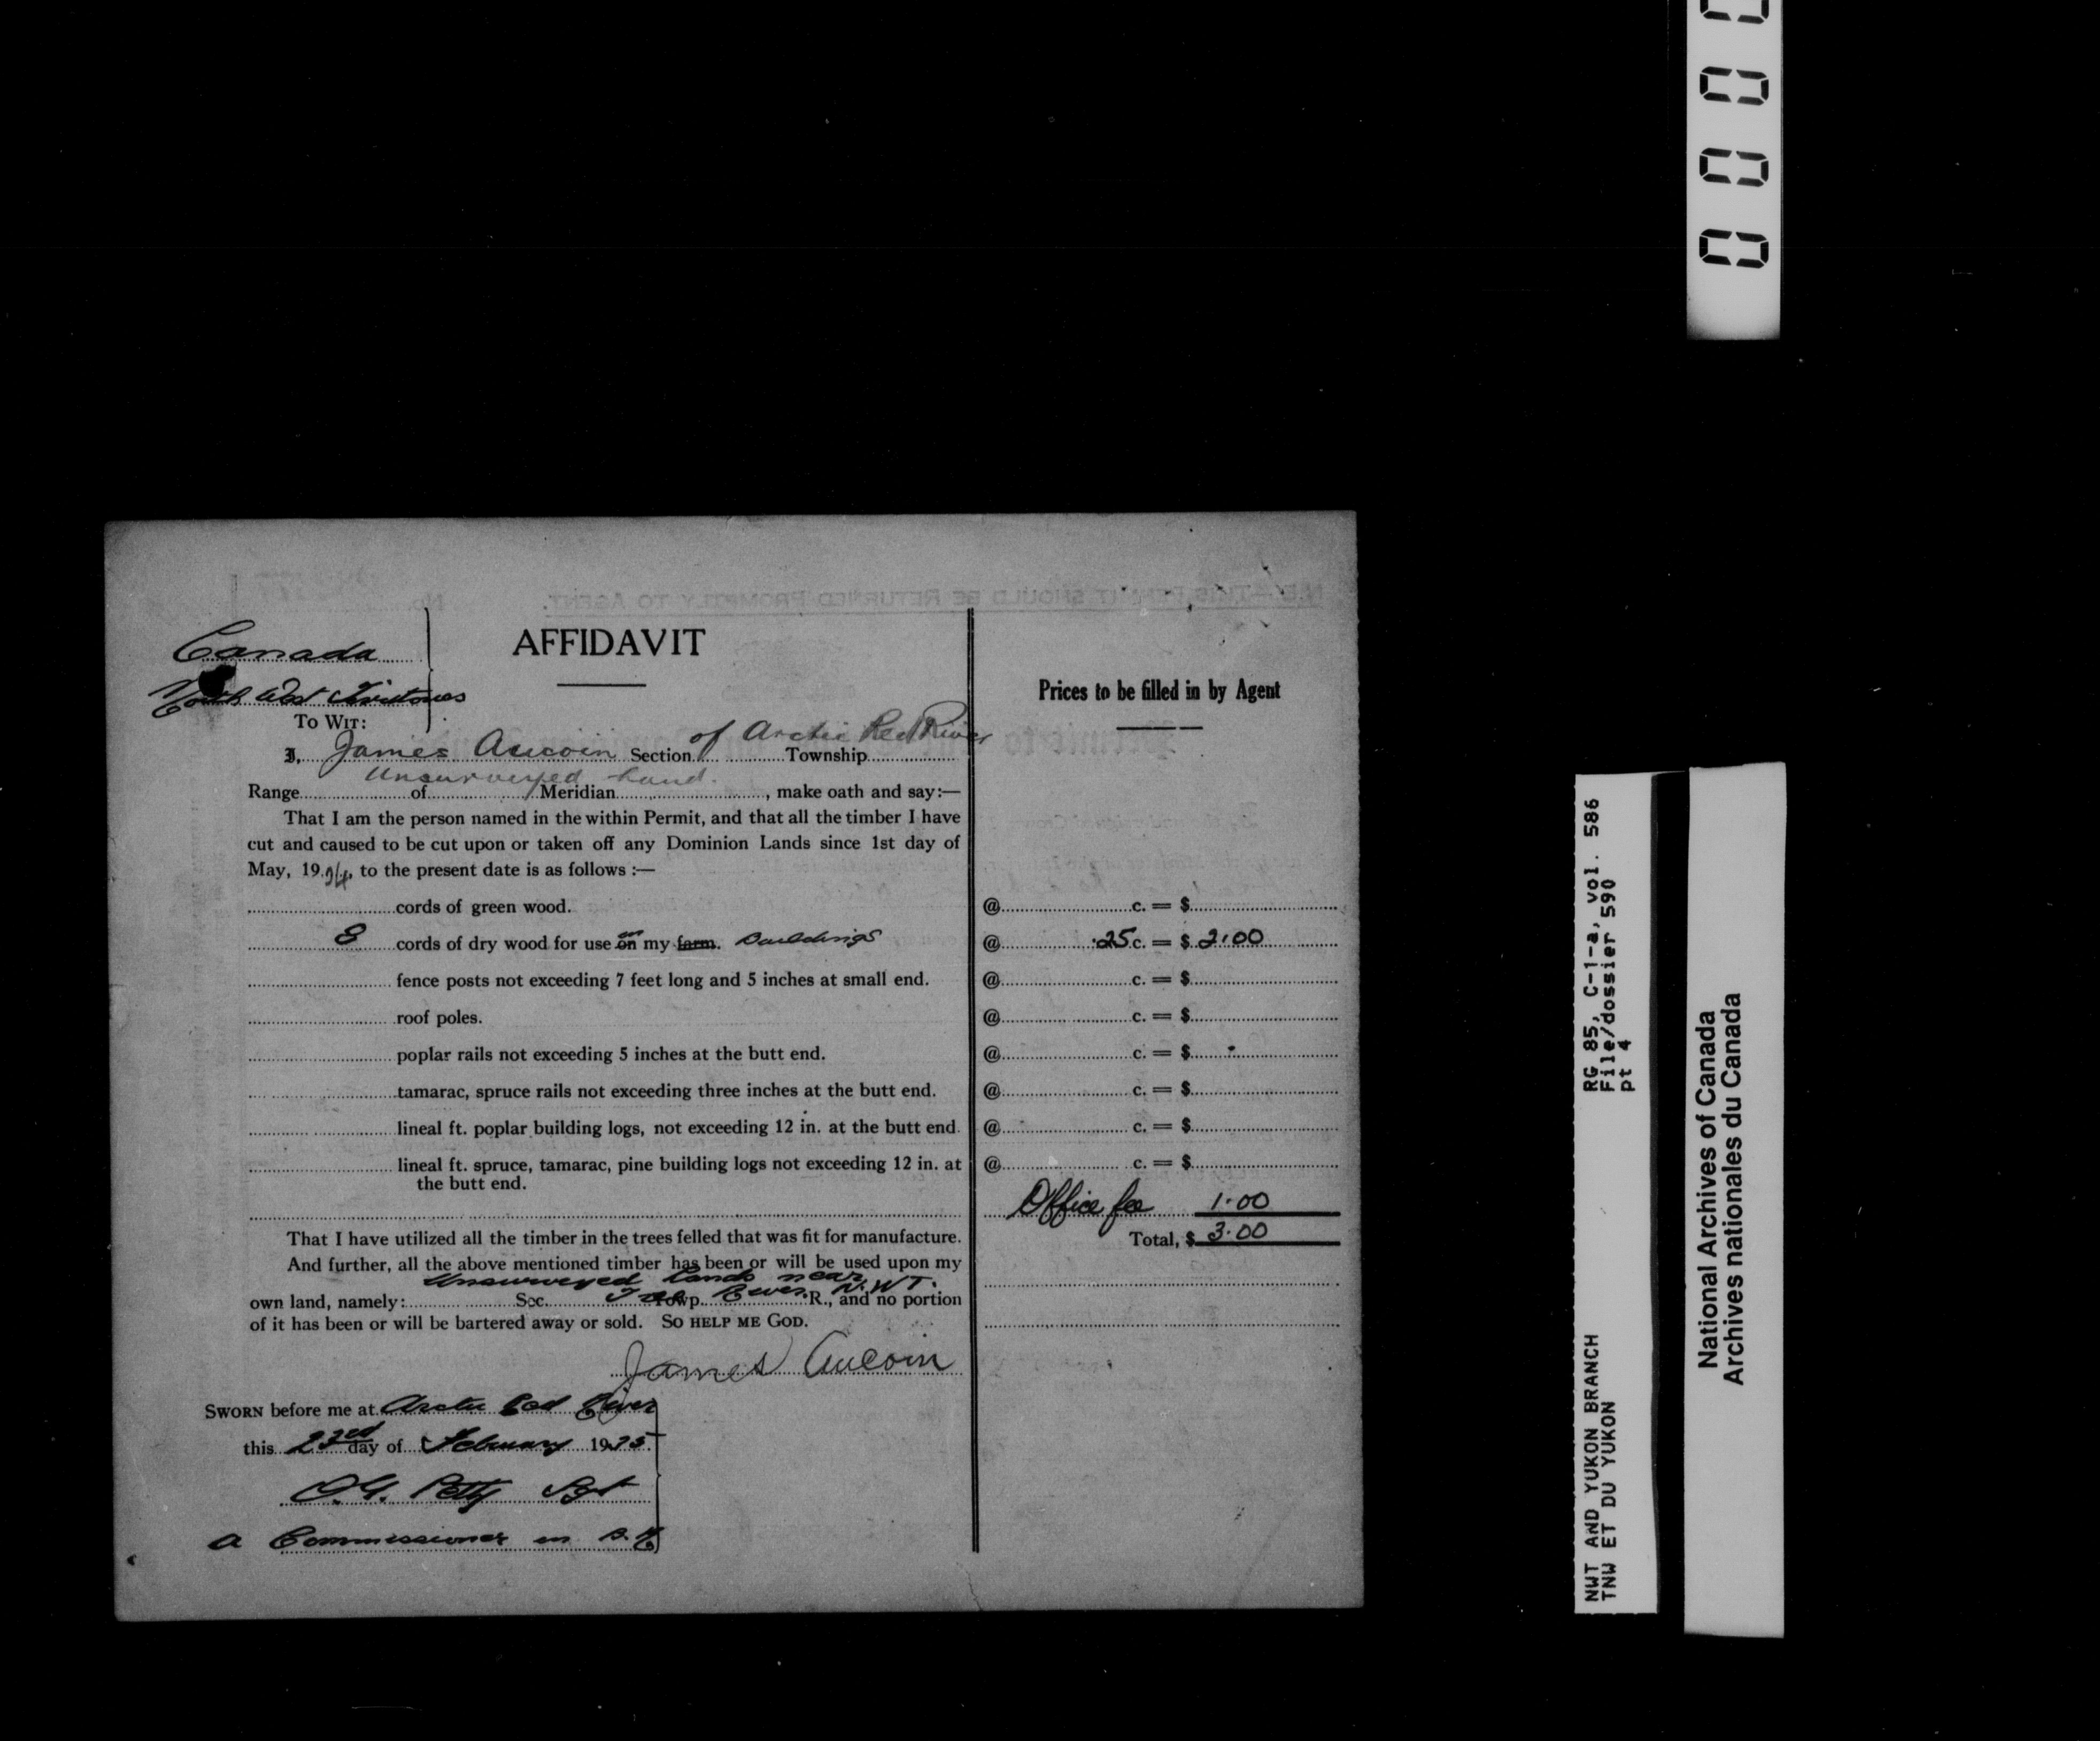 AFFIDAVIT
Canada
North West Territories
To Wit:
I, James Aucoin Section of Arctic Red River Township
Unsurveyed Land.
Range of Meridian , make oath and say:—
That I am the person named in the within Permit, and that all the timber I have
cut and caused to be cut upon or taken off any Dominion Lands since 1st day of
May, 1924, to the present date is as follows :—
cords of green wood.
8 cords of dry wood for use on in my farm. Buildings
fence posts not exceeding 7 feet long and 5 inches at small end.
roof poles.
poplar rails not exceeding 5 inches at the butt end.
tamarac, spruce rails not exceeding three inches at the butt end.
lineal ft. poplar building logs, not exceeding 12 in. at the butt end.
lineal ft. spruce, tamarac, pine building logs not exceeding 12 in. at
the butt end.
That I have utilized all the timber in the trees felled that was fit for manufacture.
And further, all the above mentioned timber has been or will be used upon my
Unsurveyed lands near
own land, namely: Sec. Towp. River N.W.T. R., and no portion
of it has been or will be bartered away or sold. So help me God.
James Aucoin
Sworn before me at Arctic Red River
this 23rd day of February 1925.
Petty Sgt
A Commissioner
Prices to be filled in by Agent
@ c. = $
@ .25 c. = $ 2.00
@ c. = $
@ c. = $
@ c. = $
@ c. = $
@ c. = $
@ c. = $
Office fee 1.00
Total, $ 3.00
N.B.—THIS PERMIT SHOULD BE RETURNED PROMPTLY TO AGENT.
No.
0 0 0 0
RG 85, C-1-a, vol. 586
File/dossier 590
pt 4
NWT AND YUKON BRANCH
TNW ET DU YUKON
National Archives of Canada
Archives nationales du Canada